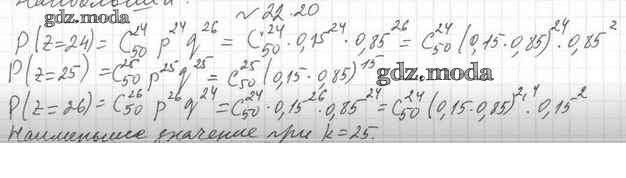 gdz.moda
№ 22.20
P(z=24) = C₅₀²⁴ p²⁴ q²⁶ = C₅₀²⁴ · 0,15²⁴ · 0,85²⁶ = C₅₀²⁴ (0,15·0,85)²⁴ · 0,85²
P(z=25) = C₅₀²⁵ p²⁵ q²⁵ = C₅₀²⁵ (0,15·0,85)¹⁵
gdz.moda
P(z=26) = C₅₀²⁶ p²⁶ q²⁴ = C₅₀²⁴ · 0,15²⁶ · 0,85²⁴ = C₅₀²⁴ (0,15·0,85)²⁴ · 0,15²
Наименьшее значение при k=25.